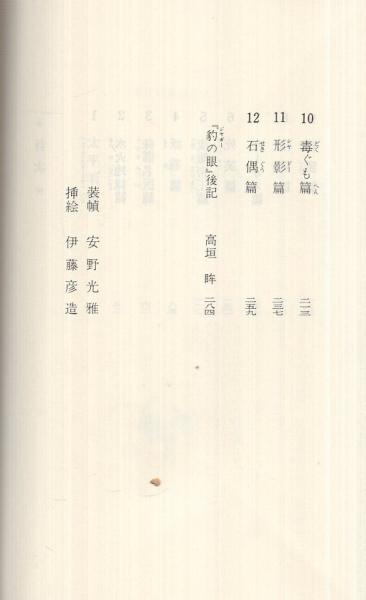 10 毒ぐも篇 二一三
11 形影篇 二三七
12 石偶篇 二五九
『豹の眼』後記 高垣 眸 二八四
装幀 安野光雅
挿絵 伊藤彦造